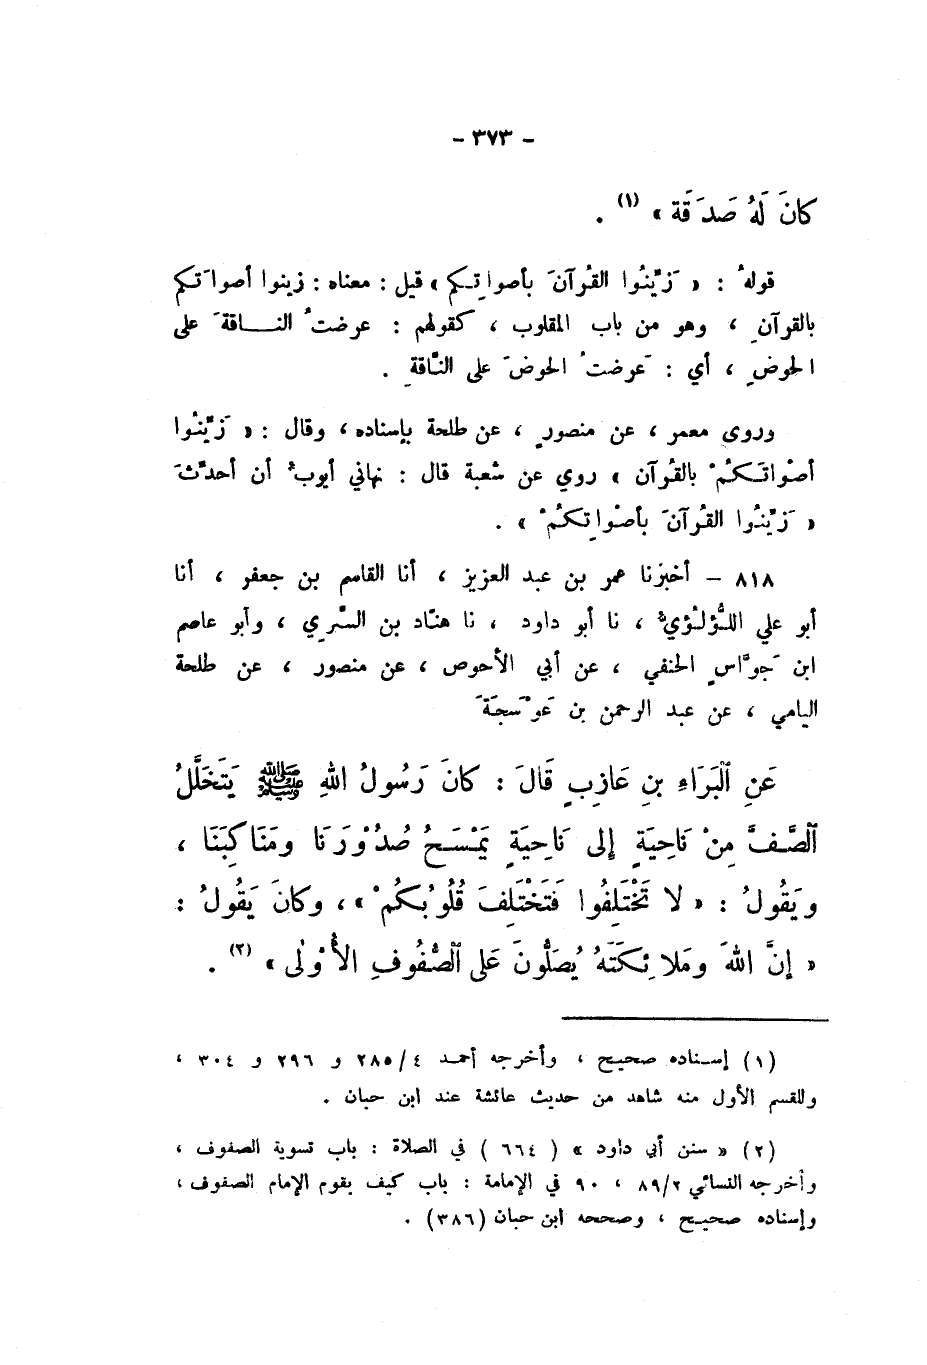 - ٣٧٣ -
كانَ لَهُ صَدَقَة » (١) .
قوله ُ : « زَيِّنُوا القُرآنَ بأصواتِكم » قيل : معناه : زينوا أصواتَكم
بالقرآنِ ، وهو من باب المقلوب ، كقولهم : عرضت ُ النـاقةَ على
الحوضِ ، أي : عَرضت ُ الحوضَ على النَّاقةِ .
وروى معمر ، عن منصورٍ ، عن طلحة بإسناده ، وقال : « زَيِّنُوا
أصْواتَكُمْ بالقُرآن » روي عن شعبة قال : نهاني أيوبُ أن أحدِّثَ
« زَيِّنُوا القُرآنَ بأصْواتِكُمْ » .
٨١٨ – أخبرَنا عمر بن عبد العزيز ، أنا القاسم بن جعفر ، أنا
أبو علي اللُّؤلُؤيُّ ، نا أبو داود ، نا هنّاد بن السَّري ، وأبو عاصم
ابن جَوَّاسٍ الحنفي ، عن أبي الأحوص ، عن منصور ، عن طلحة
اليامي ، عن عبد الرحمن بن عَوْسَجَةَ
عَنِ ٱلْبَرَاءِ بنِ عَازِبٍ قَالَ : كانَ رَسُولُ اللهِ ﷺ يَتَخَلَّلُ
ٱلصَّفَّ مِنْ نَاحِيَةٍ إلى نَاحِيَةٍ يَمْسَحُ صُدُوْرَنَا ومَنَاكِبَنَا ،
ويَقُولُ : « لا تَخْتَلِفُوا فَتَخْتَلِفَ قُلُوْبُكُمْ » ، وكانَ يَقُولُ :
« إنَّ اللهَ ومَلائِكَتَهُ يُصَلُّونَ عَلى ٱلصُّفُوفِ الأُوْلى » (٢) .
(١) إسـناده صحيح ، وأخرجه أحمد ٤/ ٢٨٥ و ٢٩٦ و ٣٠٤ ،
وللقسم الأول منه شاهد من حديث عائشة عند ابن حبان .
(٢) « سنن أبي داود » ( ٦٦٤ ) في الصلاة : باب تسوية الصفوف ،
وأخرجه النسائي ٢/ ٨٩ ، ٩٠ في الإمامة : باب كيف يقوم الإمام الصفوف ،
وإسناده صحيح ، وصححه ابن حبان (٣٨٦) .